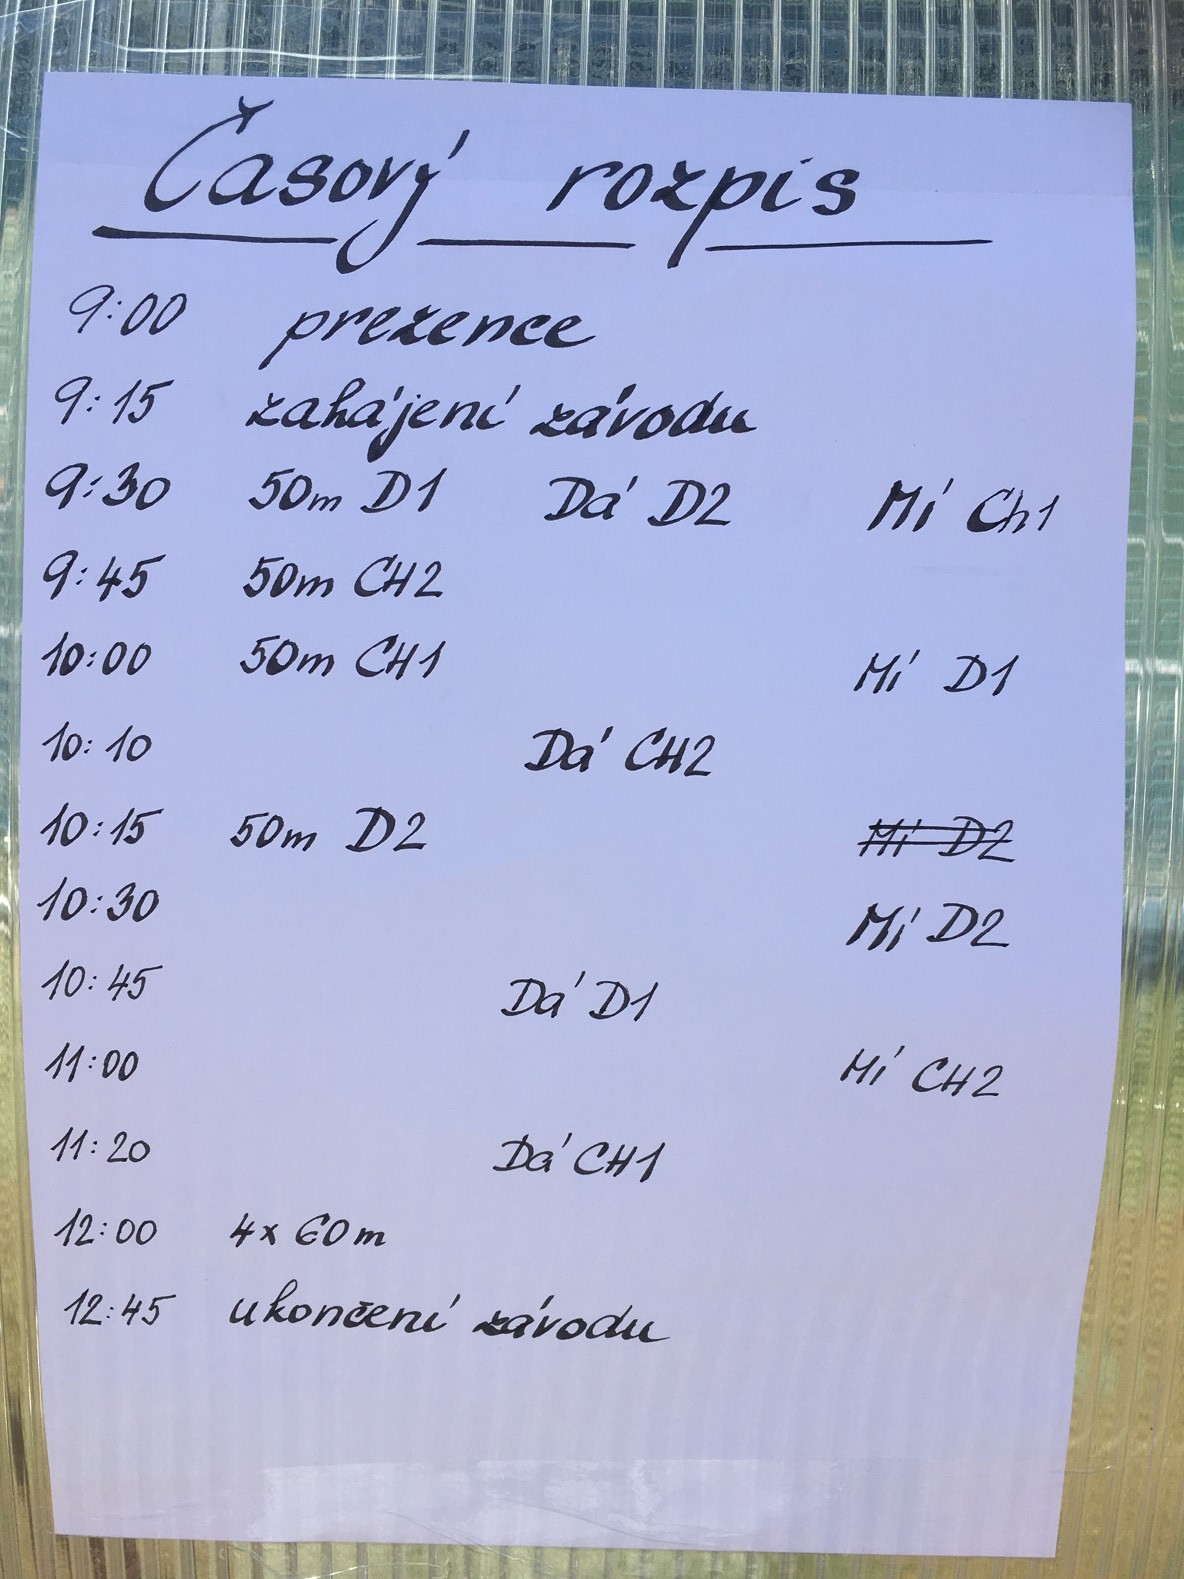 Časový rozpis
9:00 prezence
9:15 zahájení závodu
9:30 50m D1 Dá D2 Mí Ch1
9:45 50m CH2
10:00 50m CH1 Mí D1
10:10 Dá CH2
10:15 50m D2 Mí D2
10:30 Mí D2
10:45 Dá D1
11:00 Mí CH2
11:20 Dá CH1
12:00 4x 60m
12:45 ukončení závodu